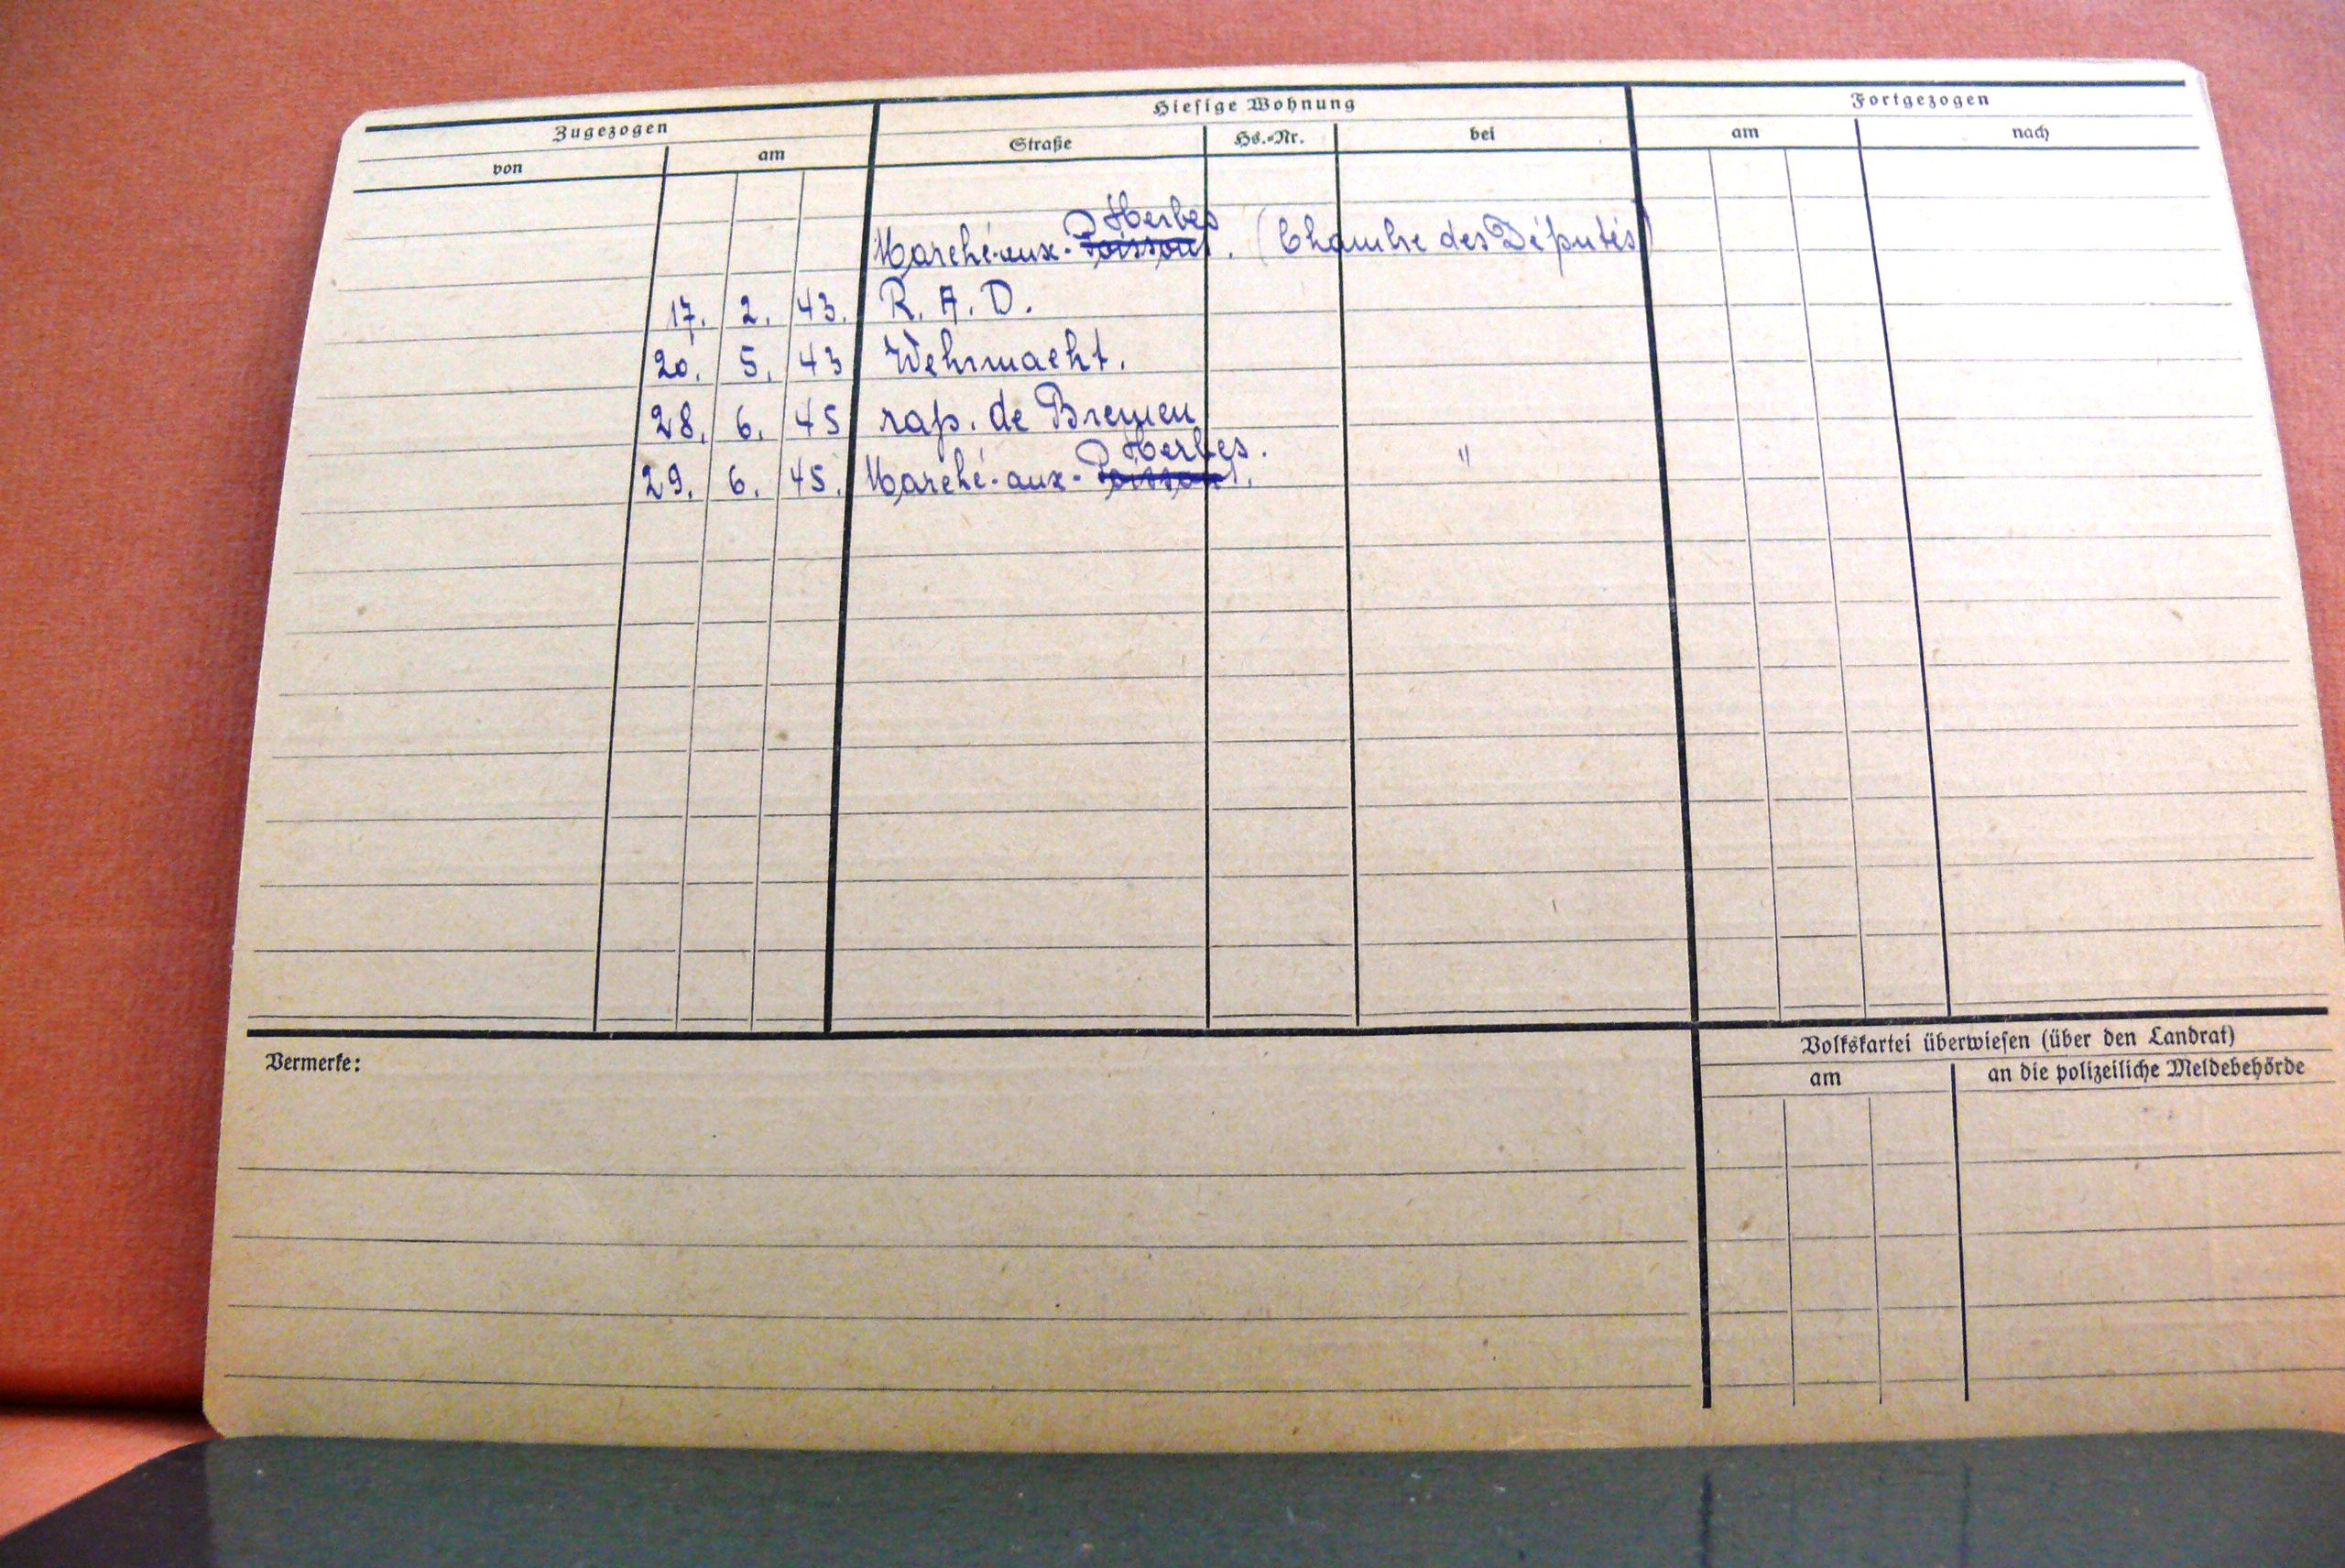 Zugezogen Hiesige Wohnung Fortgezogen
von am Straße Hs.-Nr. bei am nach
Herbes
Marché-aux-Poissons. (Chambre des Députés)
17. 2. 43. R. A. D.
20. 5. 43 Wehrmacht.
28. 6. 45 rap. de Bremen
Herbes.
29. 6. 45. Marché-aux-Poissons. "
Vermerke:
Volkskartei überwiesen (über den Landrat)
am an die polizeiliche Meldebehörde